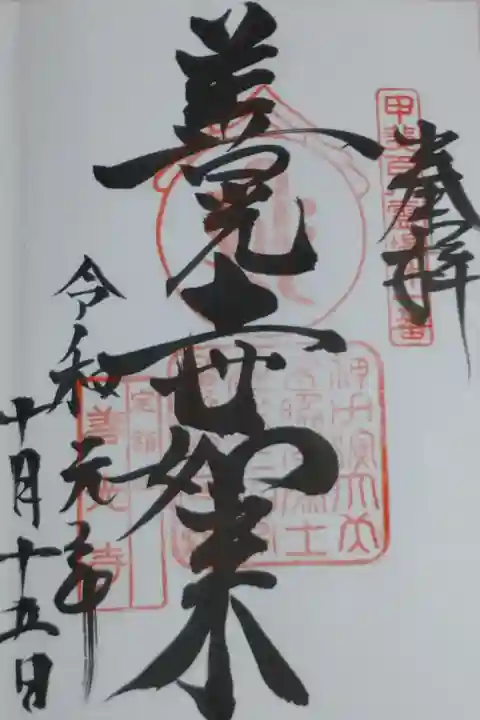 奉拝
甲斐百霊場第一番
善光寺如来
定額
善光寺
令和元年
十月十五日